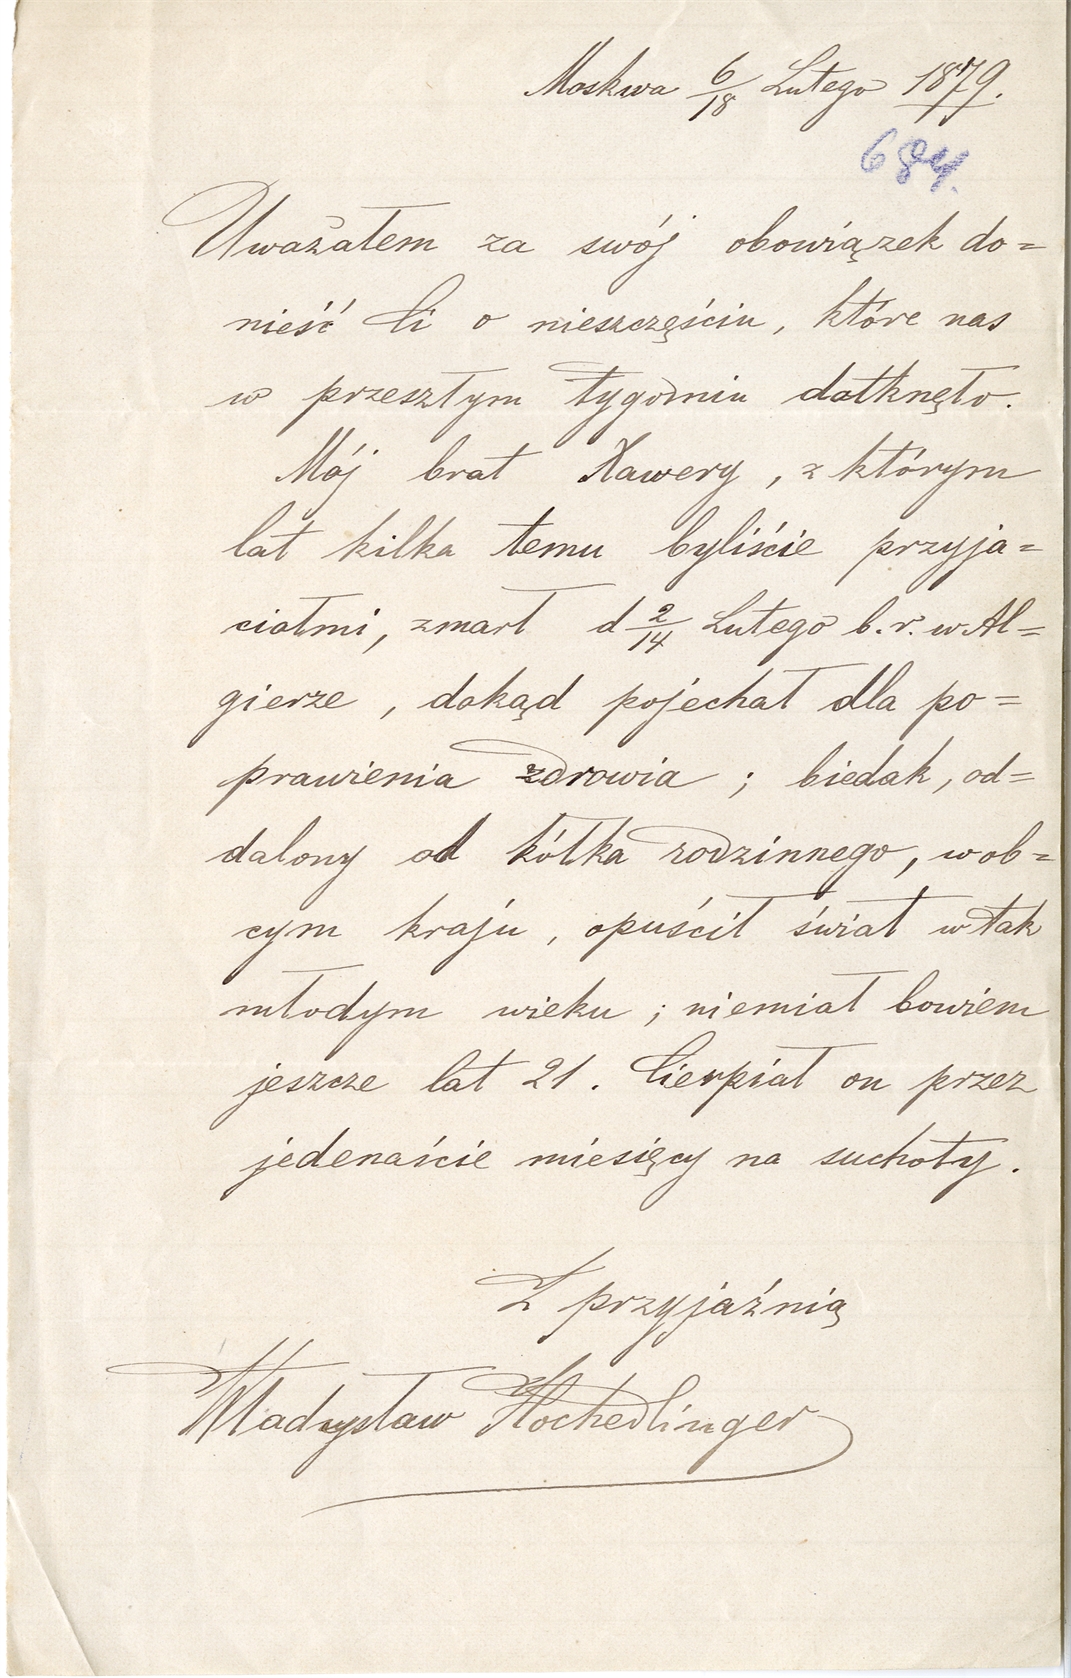 Moskwa 6/18 Lutego 1879.
684.
Uważałem za swój obowiązek do=
nieść Ci o nieszczęściu, które nas
w przeszłym tygodniu dotknęło.
Mój brat Xawery, z którym
lat kilka temu byliście przyja=
ciołmi, zmarł d 2/14 Lutego b.r. w Al=
gierze, dokąd pojechał dla po=
prawienia zdrowia; biedak, od=
dalony od kółka rodzinnego, w ob=
cym kraju, opuścił świat w tak
młodym wieku; niemiał bowiem
jeszcze lat 21. Cierpiał on przez
jedenaście miesięcy na suchoty.
Z przyjaźnią
Władysław Hochedlinger